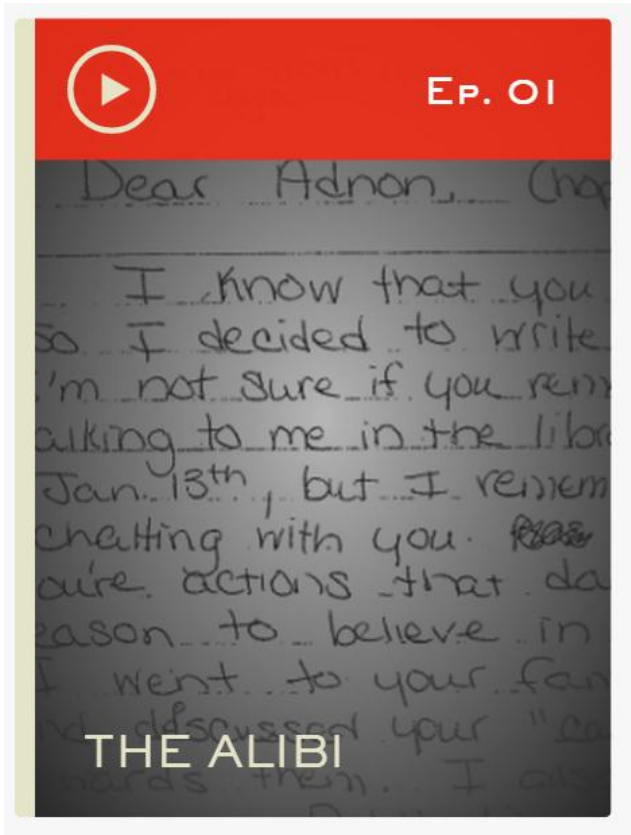 EP. 01
Dear Adnon, Cha
I know that you
so I decided to write
'm not sure if you rem
alking to me in the libr
Jan. 13th, but I remem
chatting with you.
ou're actions that da
eason to believe in
I went to your fam
nd discussed your "ca
THE ALIBI
wards them. I also